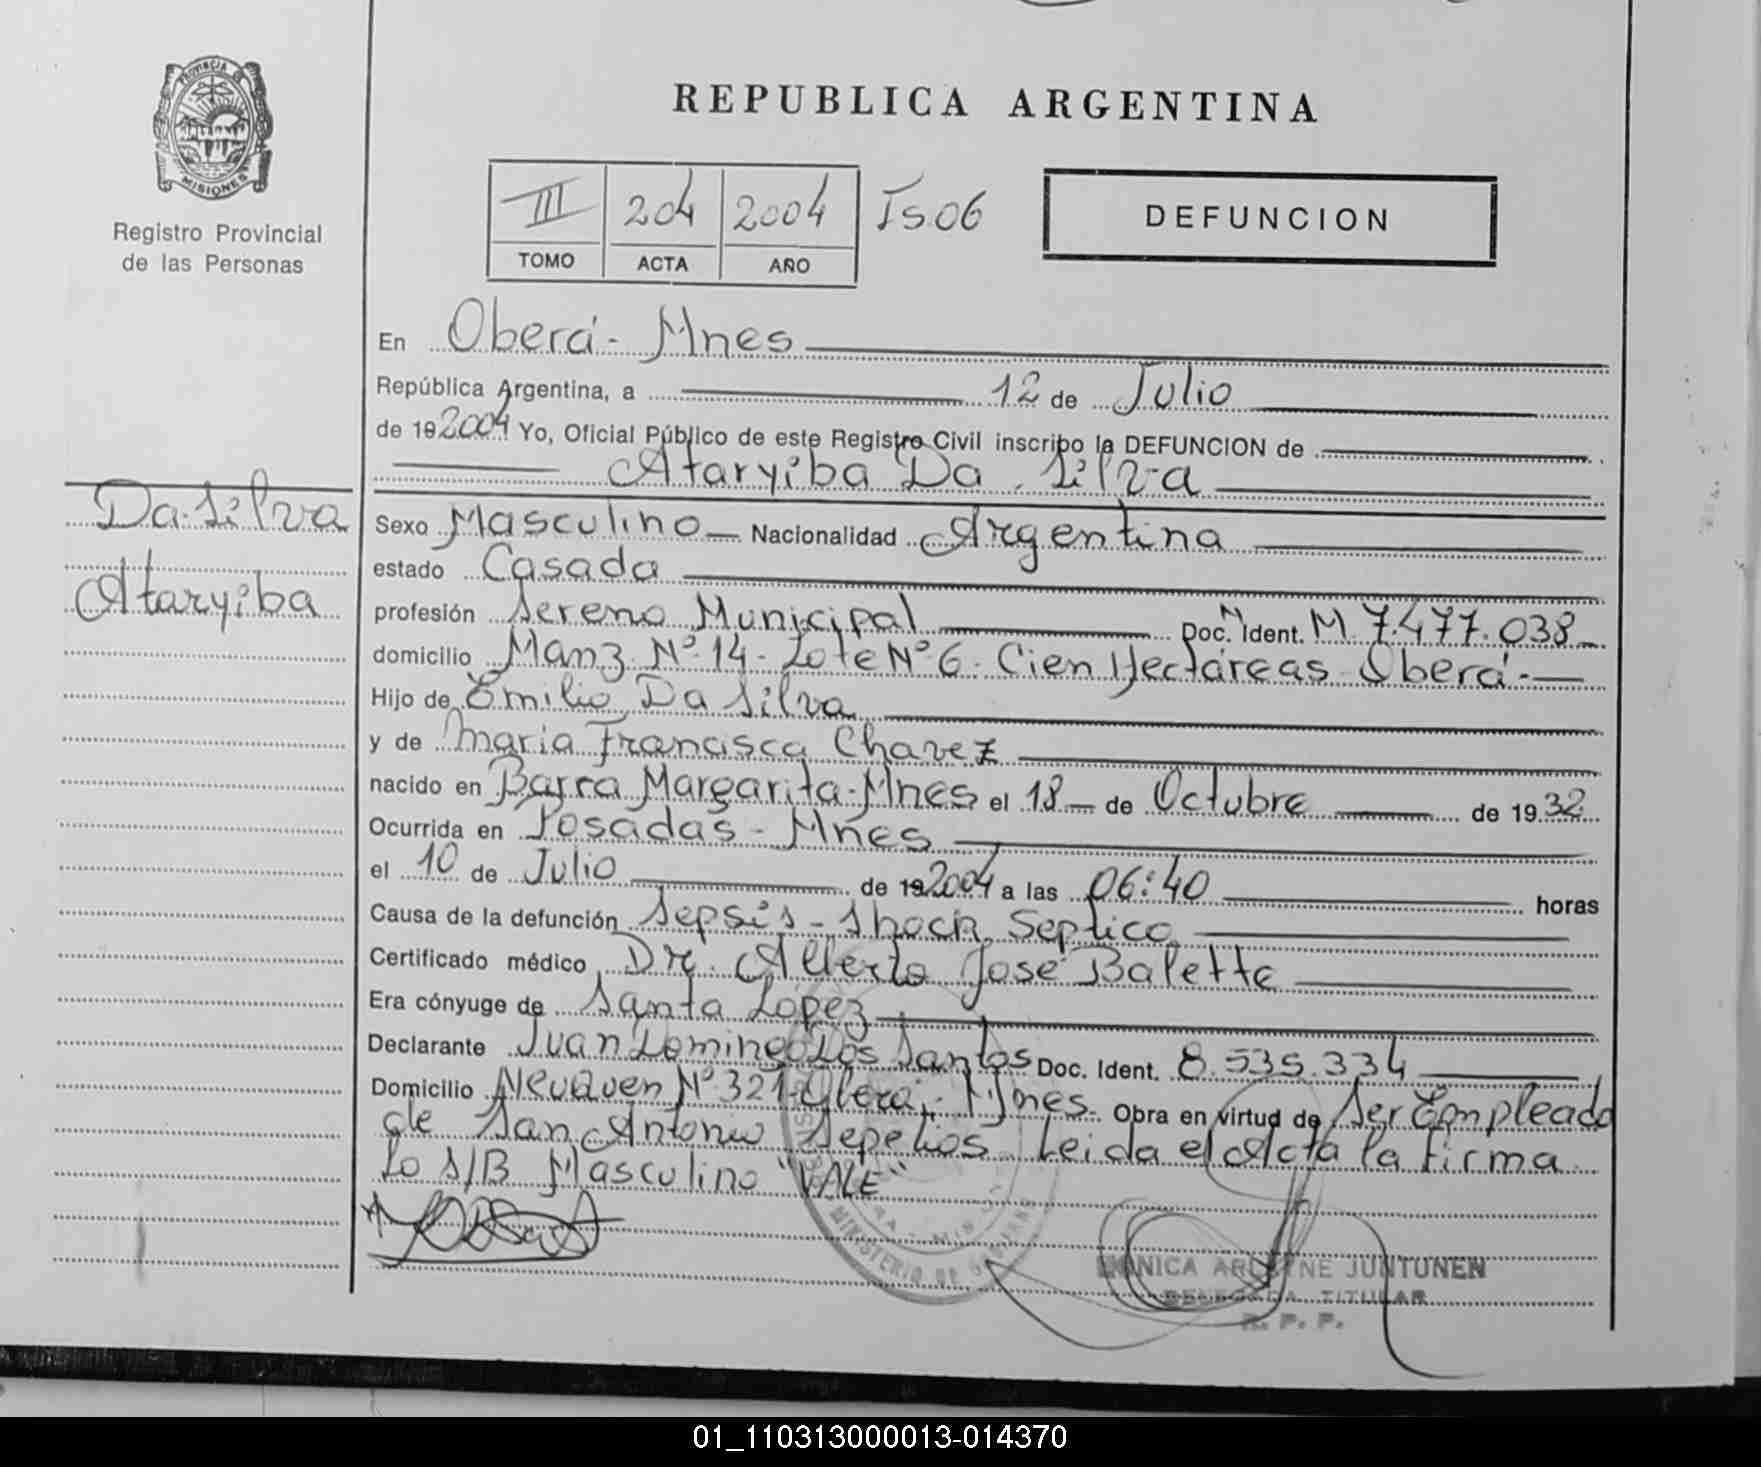 PROVINCIA DE
MISIONES
Registro Provincial
de las Personas
REPUBLICA ARGENTINA
III 204 2004 Is 06
TOMO ACTA AÑO
DEFUNCION
En Oberá - Mnes
República Argentina, a 12 de Julio
de 192004 Yo, Oficial Público de este Registro Civil inscribo la DEFUNCION de
Ataryiba Da Silva
Da Silva
Ataryiba
Sexo Masculino Nacionalidad Argentina
estado Casada
profesión Sereno Municipal Doc. N Ident. M 7.477.038
domicilio Manz. Nº 14 - Lote Nº 6 - Cien Hectáreas Oberá -
Hijo de Emilio Da Silva
y de Maria Francisca Chavez
nacido en Barra Margarita - Mnes el 18 de Octubre de 1932
Ocurrida en Posadas - Mnes
el 10 de Julio de 192004 a las 06:40 horas
Causa de la defunción Sepsis - Shock Septico
Certificado médico Dr. Alberto José Balette
Era cónyuge de Santa Lopez
Declarante Juan Domingo Dos Santos Doc. Ident. 8.535.334
Domicilio Neuquen Nº 321 - Oberá - Mnes Obra en virtud de Ser Empleado
de San Antonio Sepelios Leida el Acta la Firma
Lo S/B Masculino "VALE"
MINISTERIO DE GOBIERNO
MONICA ARLENE JUNTUNEN
DELEGADA TITULAR
R. P. P.
01_110313000013-014370